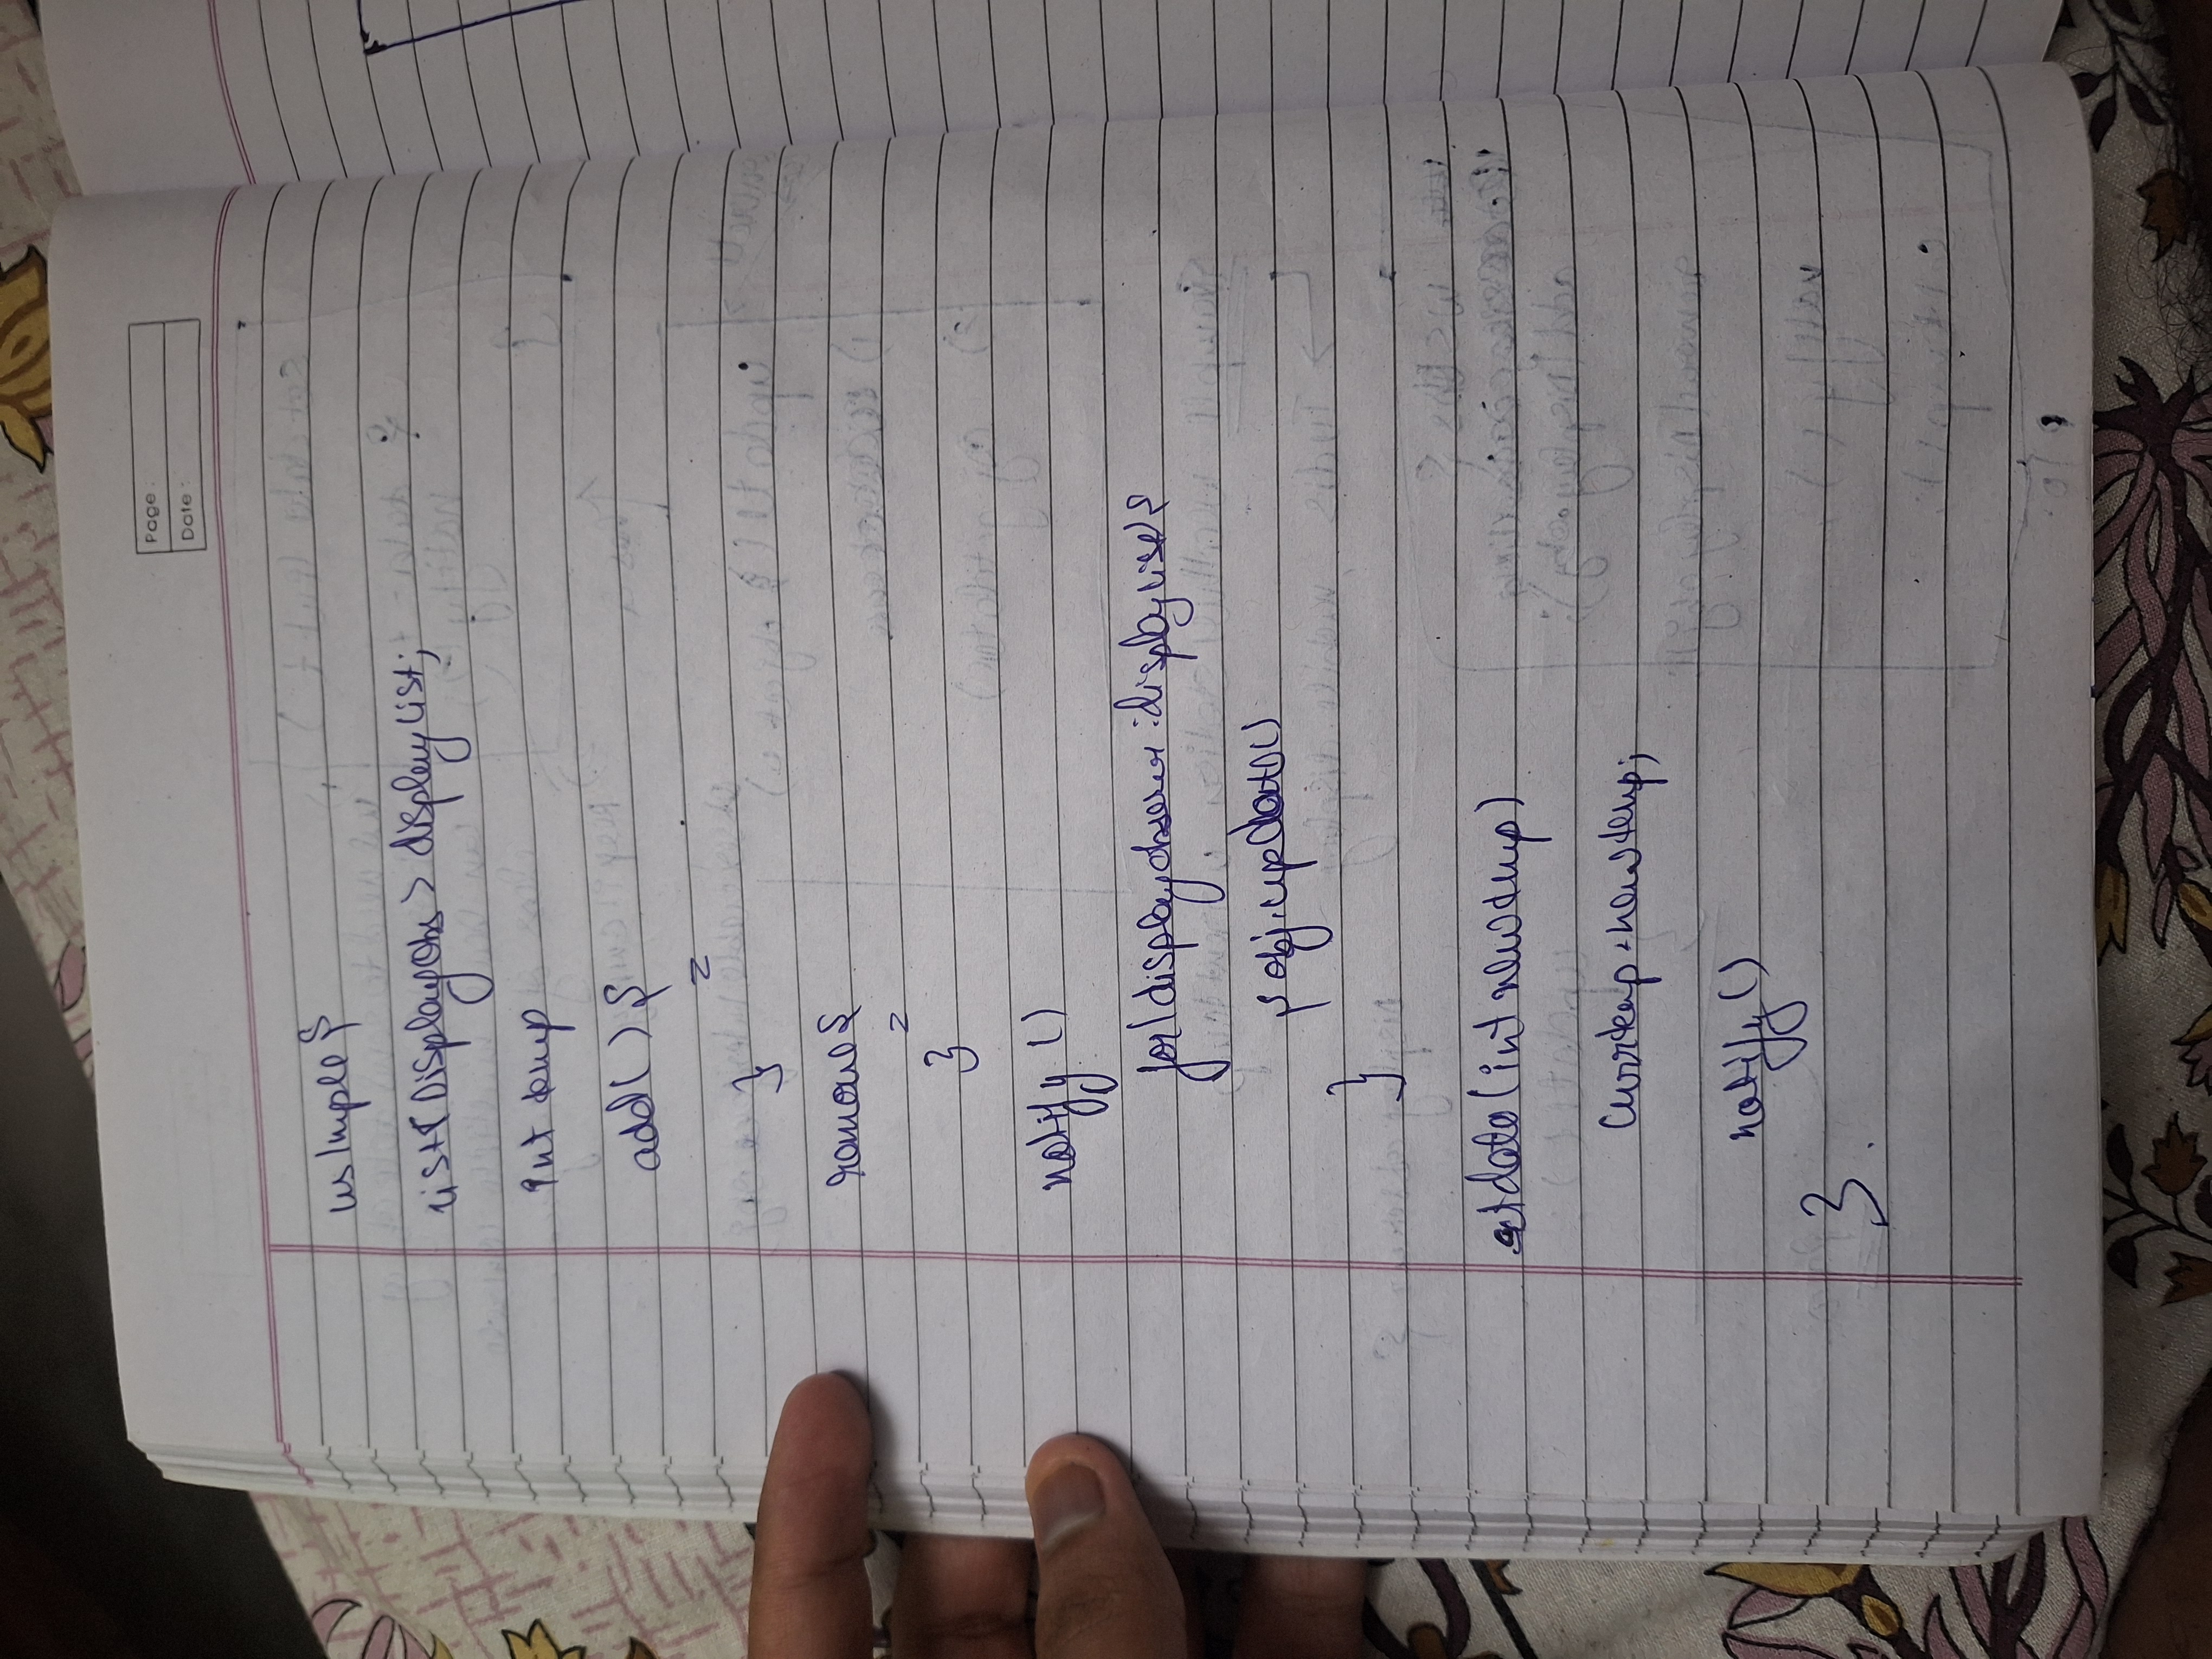 Page :
Date :
wsImple {
list<Displayobs> displaylist;
int temp
add( ) {
=
}
remove {
=
}
notify ( )
for(displayobserver : displaylist) {
obj.update()
}
setdata (int newtemp)
currtemp = newtemp;
notify ( )
}